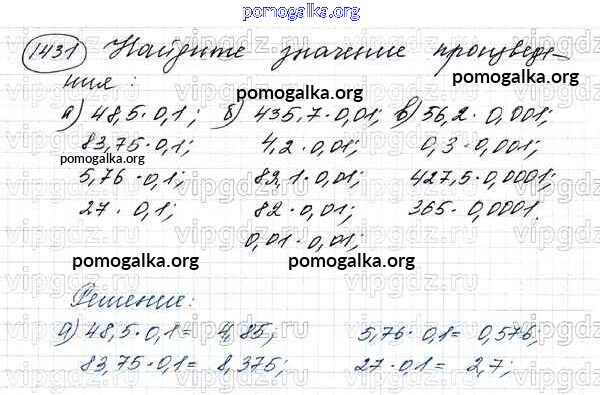 pomogalka.org
1431 Найдите значение произведе-
ния:
pomogalka.org
а) 48,5·0,1; б) 435,7·0,01; в) 56,2·0,001;
83,75·0,1; 4,2·0,01; 0,3·0,001;
pomogalka.org
5,76·0,1; 82,1·0,01; 427,5·0,0001;
27·0,1; 82·0,01; 365·0,0001.
0,01·0,01;
pomogalka.org pomogalka.org
Решение:
а) 48,5·0,1= 4,85; 5,76·0,1= 0,576;
83,75·0,1= 8,375; 27·0,1= 2,7;
vipgdz.ru